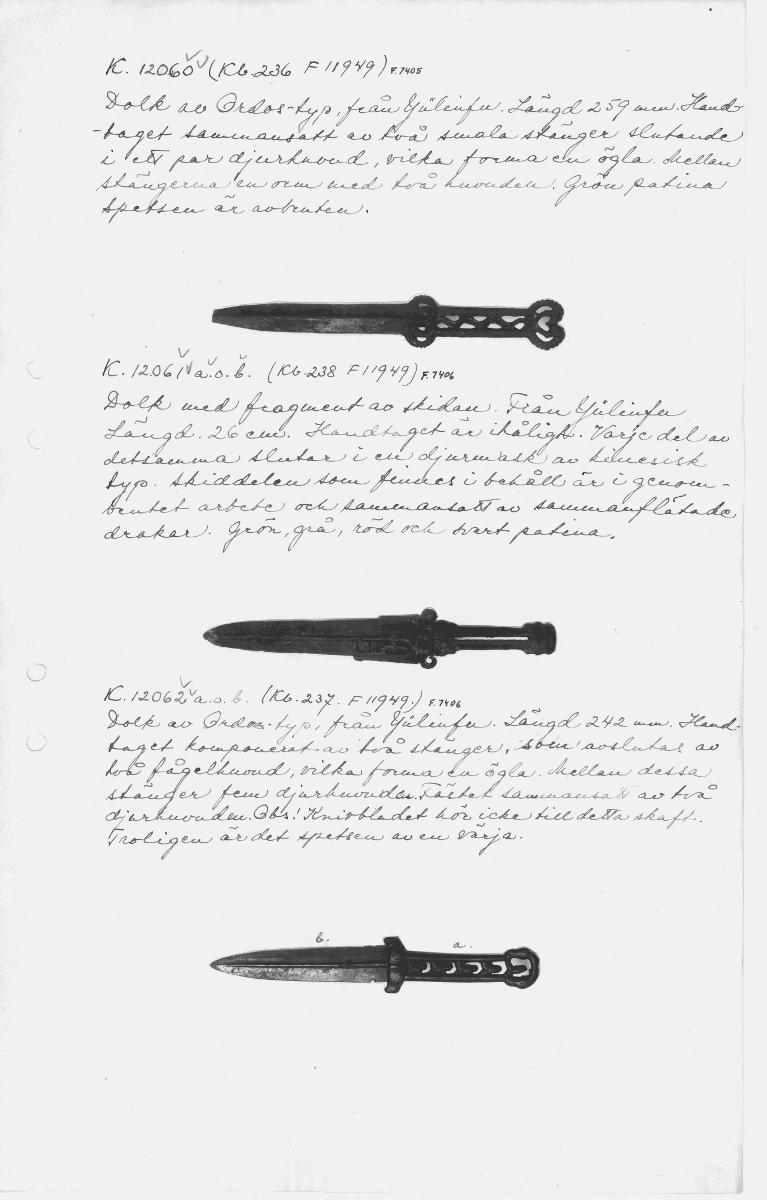 K. 12060 (Kb. 236 F 11949) F. 7405
Dolk av Ordos-typ, från Yülinfu. Längd 259 mm. Hand-
-taget sammansatt av två smala stänger slutande
i ett par djurhuvud, vilka forma en ögla. Mellan
stängerna en orm med två huvuden. Grön patina
Spetsen är avbruten.
K. 12061 a. o. b. (Kb. 238 F 11949) F. 7406
Dolk med fragment av skidan. Från Yülinfu
Längd. 26 cm. Handtaget är ihåligt. Varje del av
detsamma slutar i en djurmask av kinesisk
typ. Skiddelen som finnes i behåll är i genom-
brutet arbete och sammansatt av sammanflätade
drakar. Grön, grå, röd och svart patina.
K. 12062 a. o. b. (Kb. 237. F 11949.) F. 7406
Dolk av Ordos-typ, från Yülinfu. Längd 242 mm. Hand-
taget komponerat av två stänger, som avslutas av
två fågelhuvud, vilka forma en ögla. Mellan dessa
stänger fem djurhuvuden. Fästet sammansatt av två
djurhuvuden. Obs! Knivbladet hör icke till detta skaft.
Troligen är det spetsen av en värja.
b. a.